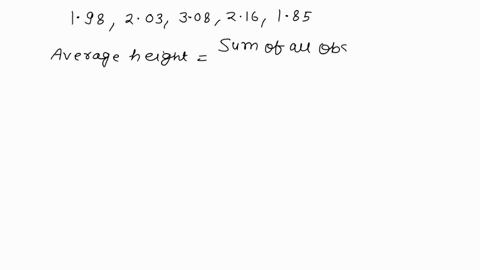 1.98, 2.03, 3.08, 2.16, 1.85
Average height = Sum of all obs